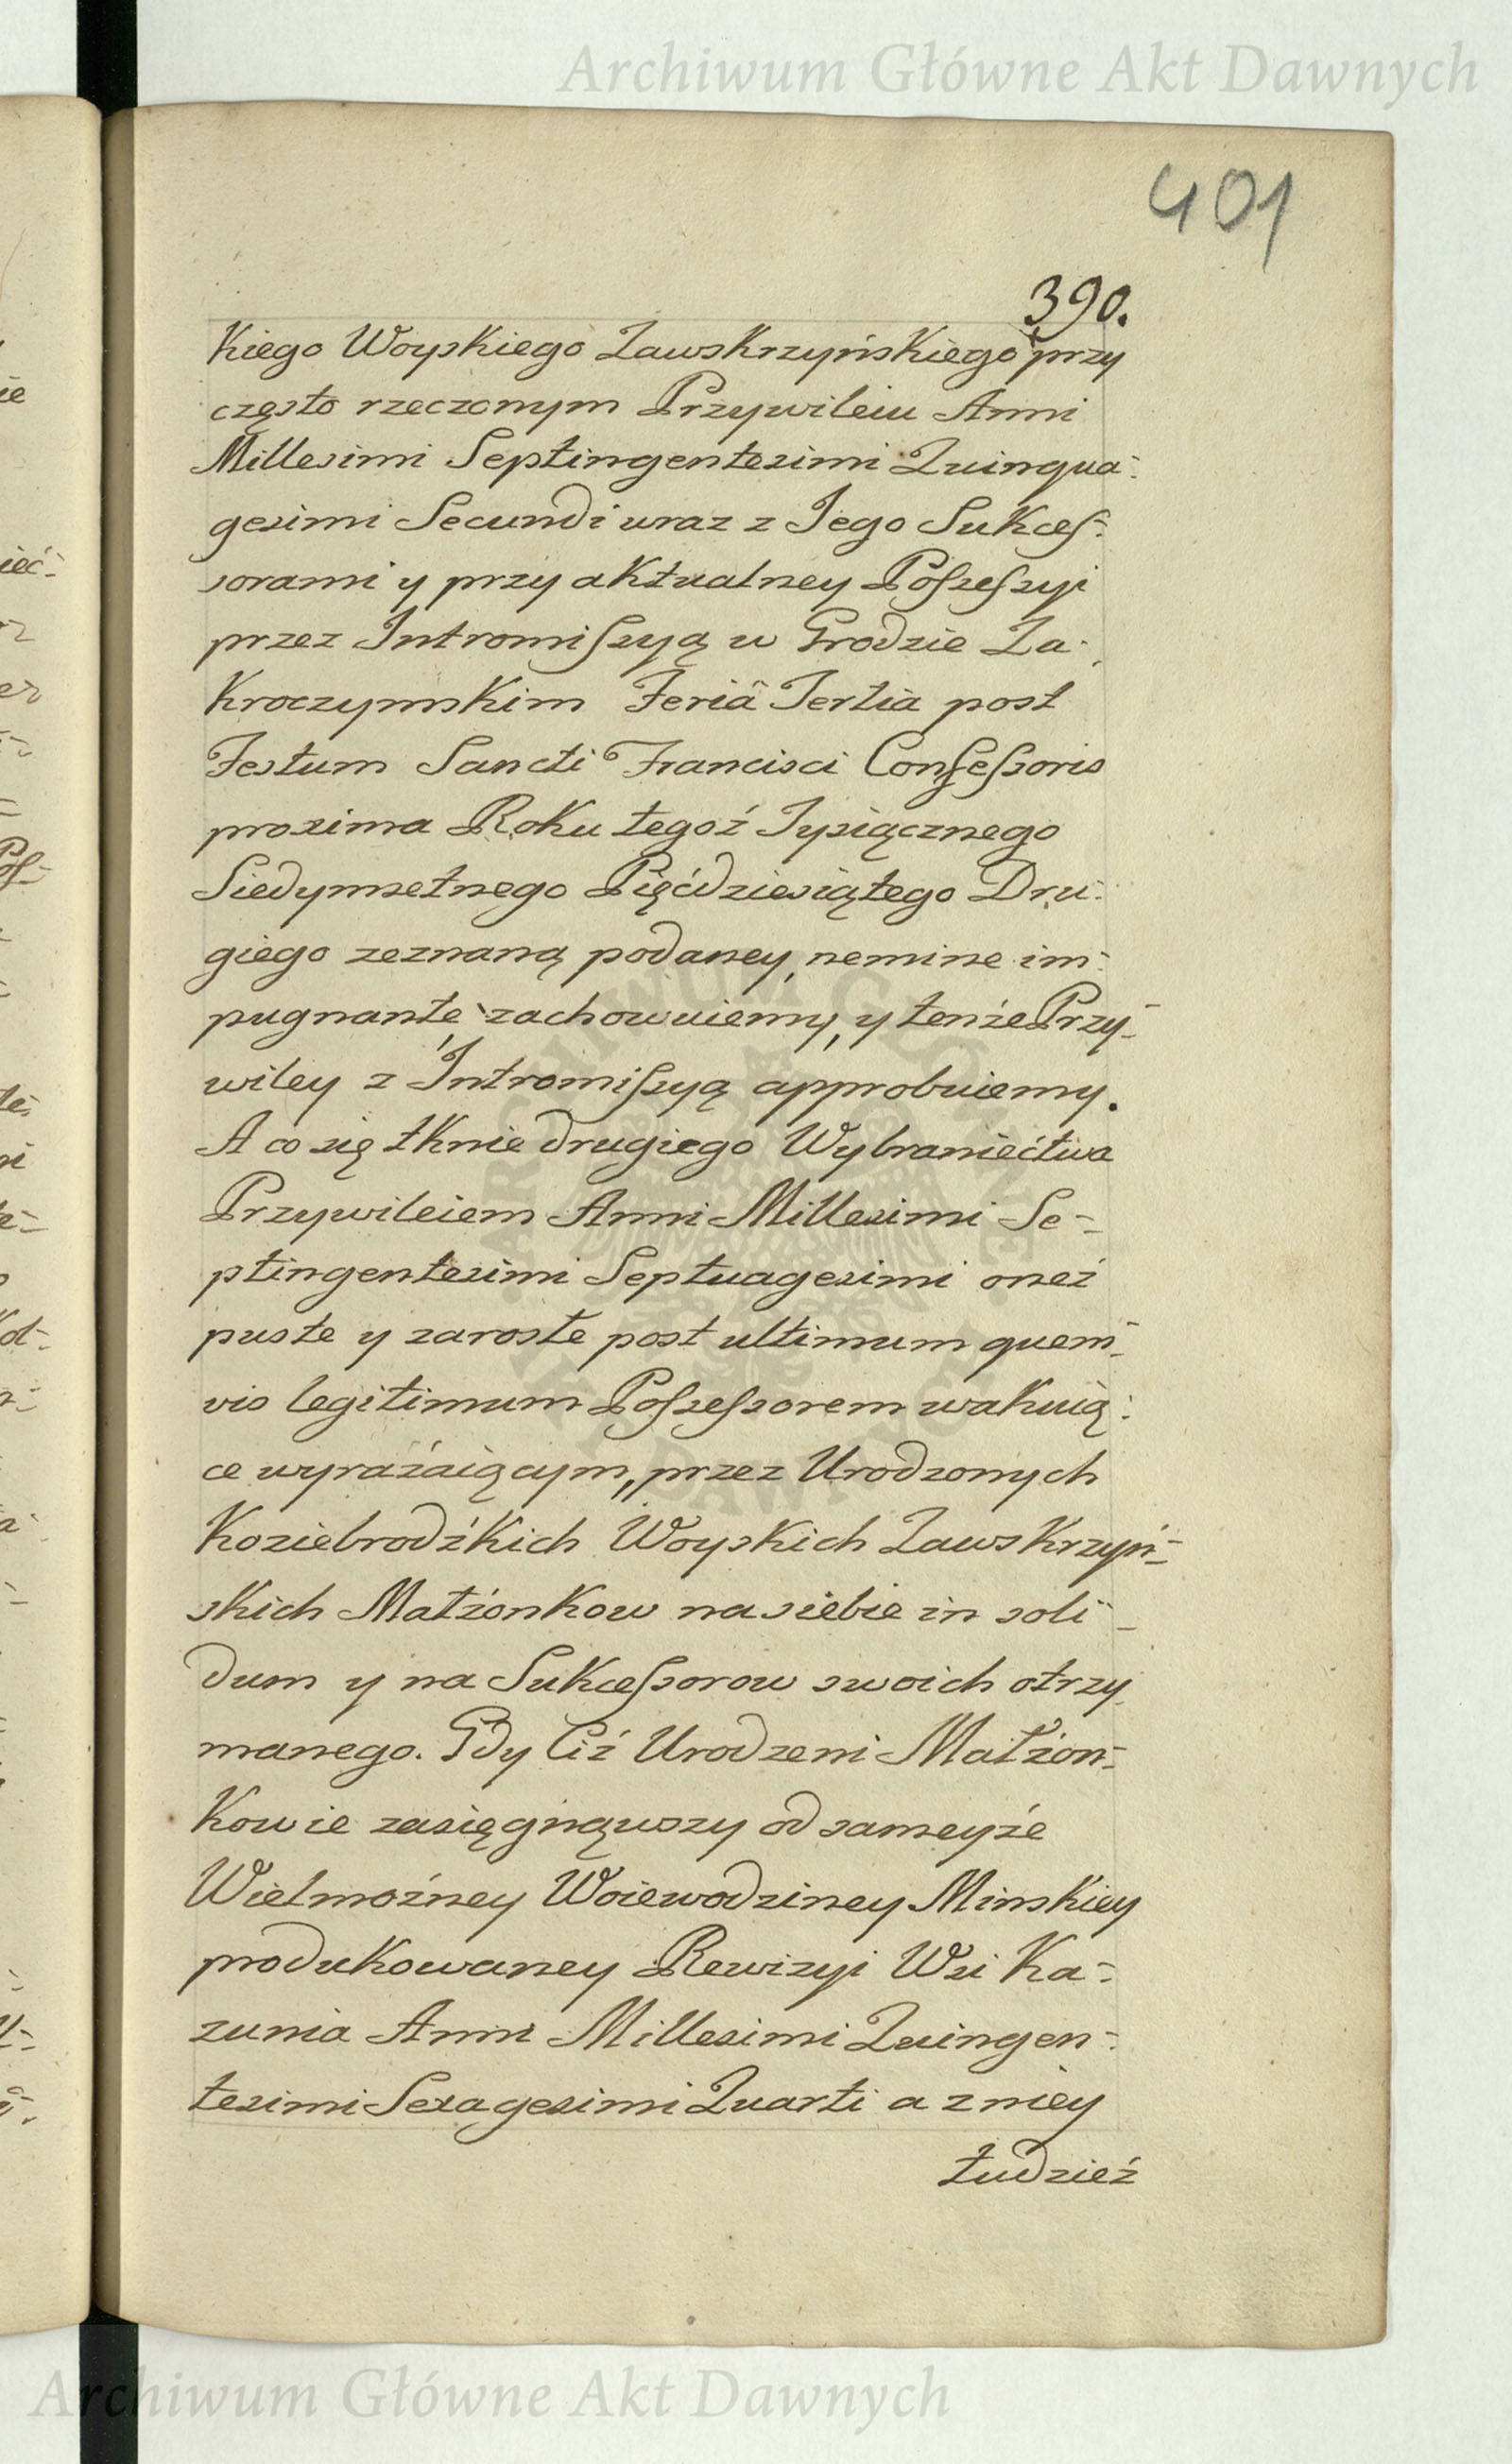 Archiwum Główne Akt Dawnych
401
390.
Kiego Woyskiego Zawskrzyńskiego przy
często rzeczonym Przywileiu Anni
Millesimi Septingentesimi Quinqua-
gesimi Secundi wraz z Jego Sukces-
sorami y przy aktualney Possessyi
przez Intromissyą w Grodzie Za-
kroczymskim Feriâ Tertia post
Festum Sancti Francisci Confessoris
proxima Roku tegoż Tysiącznego
Siedymsetnego Pięćdziesiątego Dru-
giego zeznaną podaney, nemine im-
pugnante, zachowuiemy, y tenże Przy-
wiley z Intromissyą approbuiemy.
A co się tknie drugiego Wybraniectwa
Przywileiem Anni Millesimi Se-
ptingentesimi Septuagesimi oneż
puste y zarosłe post ultimum quem-
vis legitimum Possessorem wakuią-
ce wyrażaiącym, przez Urodzonych
Koziebrodźkich Woyskich Zawskrzyń-
skich Małżonkow na siebie in soli-
dum y na Sukcessorow swoich otrzy
manego. Gdy Ciż Urodzeni Małżon-
kowie zasięgnąwszy od sameyże
Wielmożney Woiewodziney Minskiey
produkowaney Rewizyi Wsi Ka-
zunia Anni Millesimi Quingen-
tesimi Sexagesimi Quarti a z niey
tudzież
Archiwum Główne Akt Dawnych